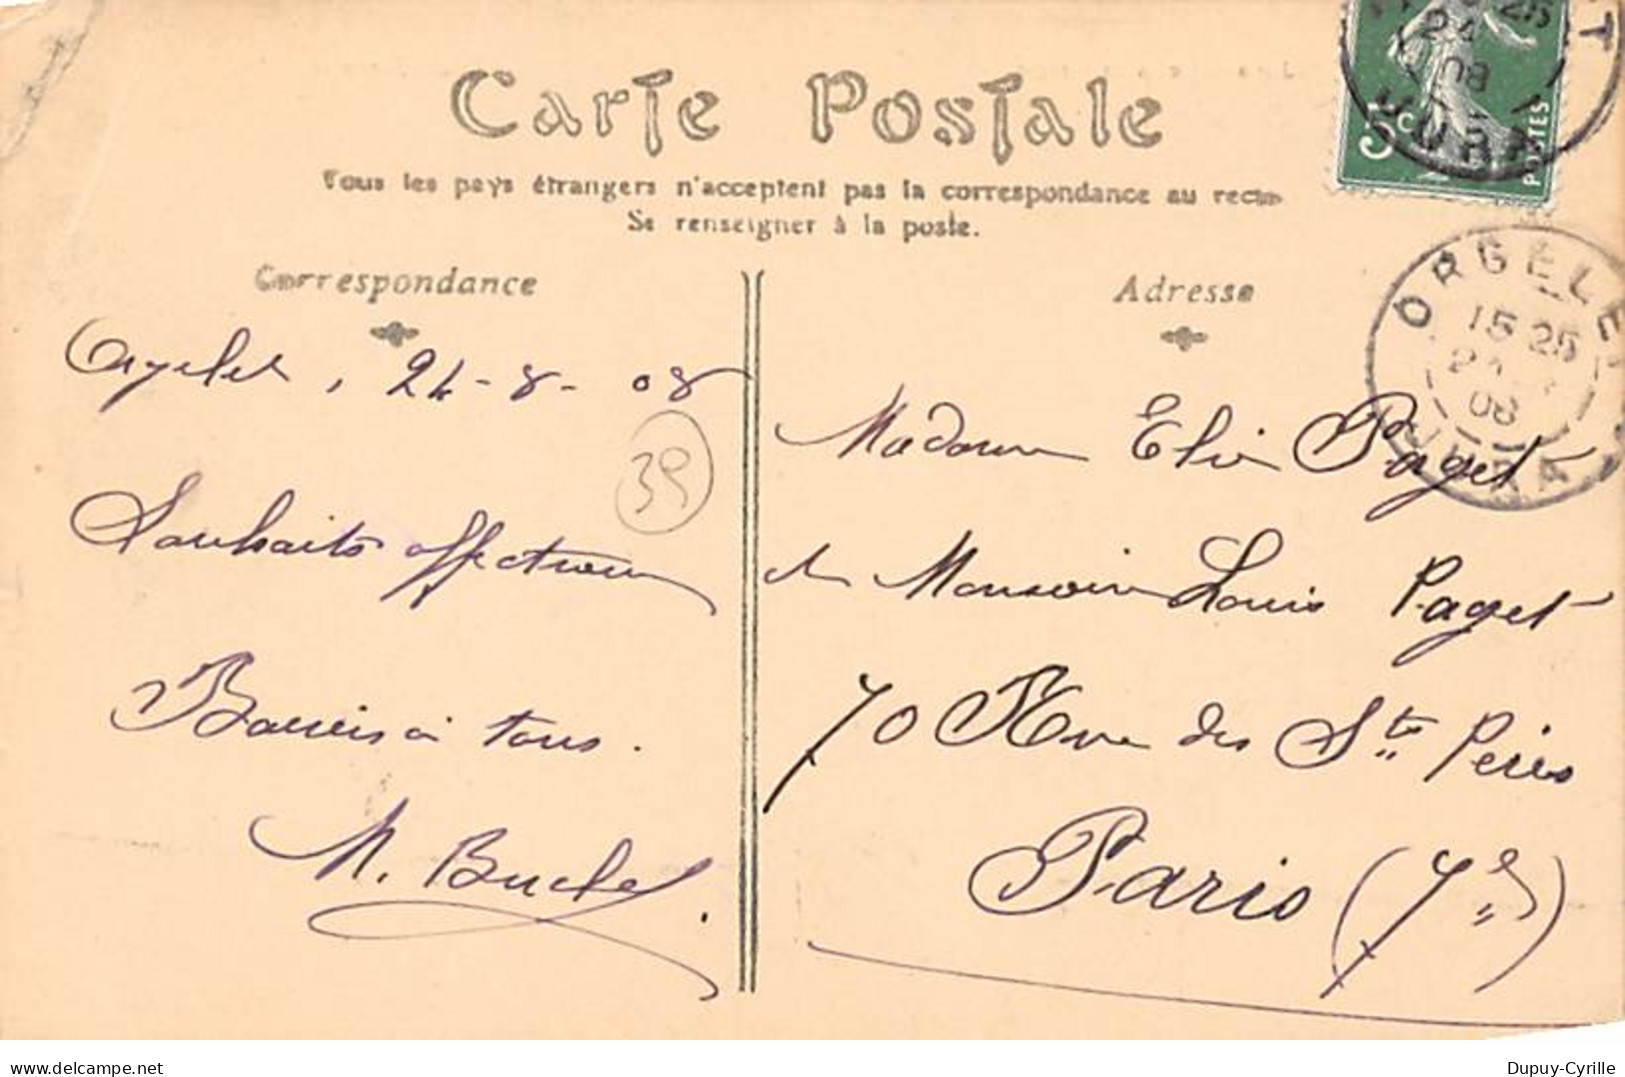 Carte Postale
Tous les pays étrangers n'acceptent pas la correspondance au recto
Se renseigner à la poste.
Correspondance
Adresse
5c POSTES
24
08
JURA
ORGELET
15 25
24
08
JURA
Orgelet, 24-8-08
39
Souhaits affectueux
Baisers à tous.
M. Buchet.
Madame Elie Paget
et Monsieur Louis Paget
70 Rue des Sts Pères
Paris (7e)
delcampe.net
Dupuy-Cyrille